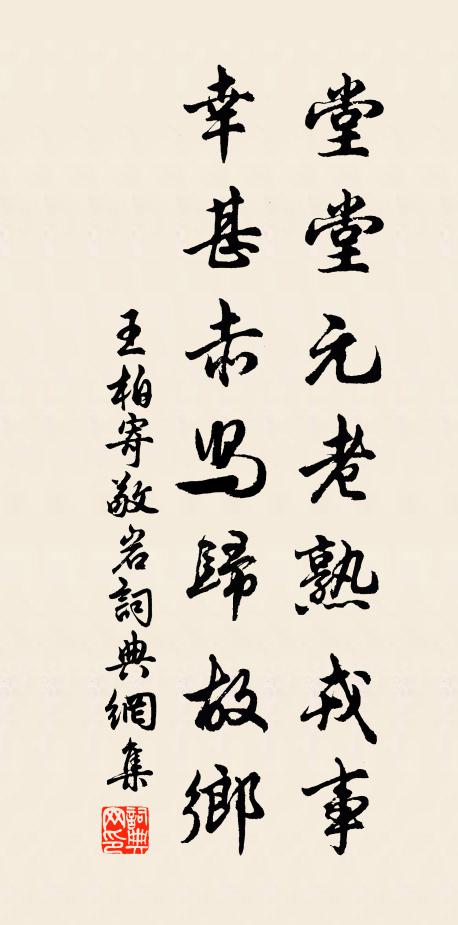 堂堂元老熟戎事
幸甚赤舄歸故鄉
王柏寄敬岩詞典網集
詞典网印